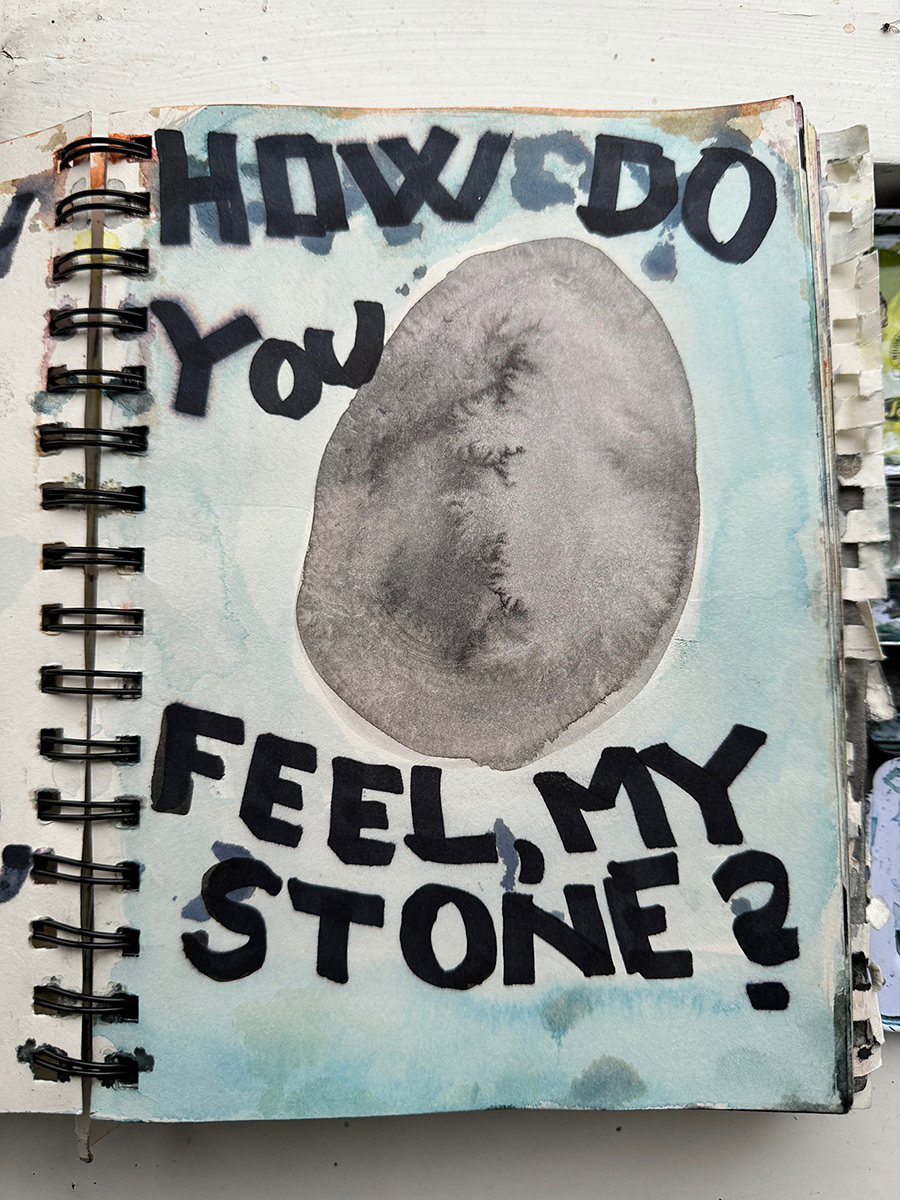 HOW DO
YOU
FEEL, MY
STONE?